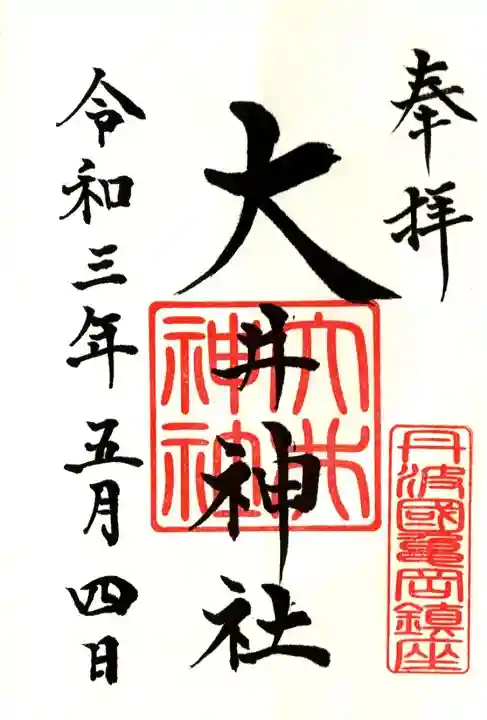 奉拝
丹波國龜岡鎮座
大井神社
大井神社
令和三年五月四日